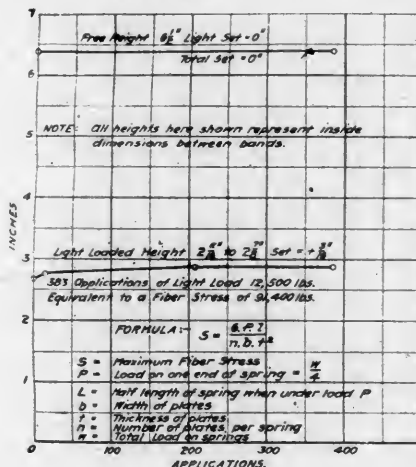 7
Free Height 6½" Light Set = 0"
Total Set = 0"
6
NOTE: All heights here shown represent inside
dimensions between bands.
5
4
INCHES
3
Light Loaded Height to 2⅞" Set = +
383 Applications of Light Load 12,500 lbs.
Equivalent to a Fiber Stress of 91,400 lbs.
2
FORMULA:- S = 6.P.l / n.b.t²
S = Maximum Fiber Stress
P = Load on one end of spring = W/4
1
L = Half length of spring when under load P
b = Width of plates
t = Thickness of plates
n = Number of plates per spring
w = Total Load on springs
0 100 200 300 400
APPLICATIONS.